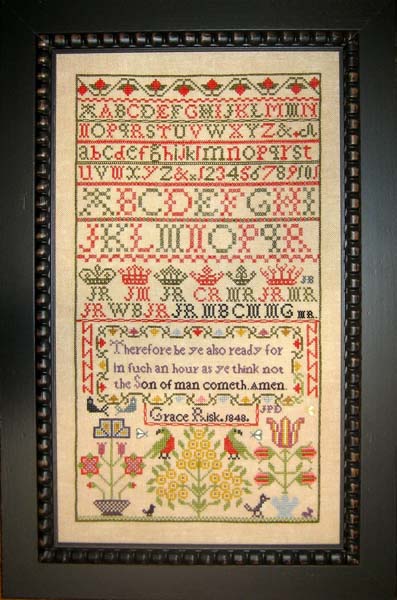 ABCDEFGHIJKLMN
OPQRSTUVWXYZ&
abcdefghijklmnopqrst
UVWXYZ&
12345678910
ABCDEFGHI
JKLMNOPQR
JB
JR JM JR CR MR JR MR
JR WB JR JR MB CM MG MR.
Therefore be ye also ready for
in such an hour as ye think not
the Son of man cometh. Amen.
Grace Risk. 1848.
JPD